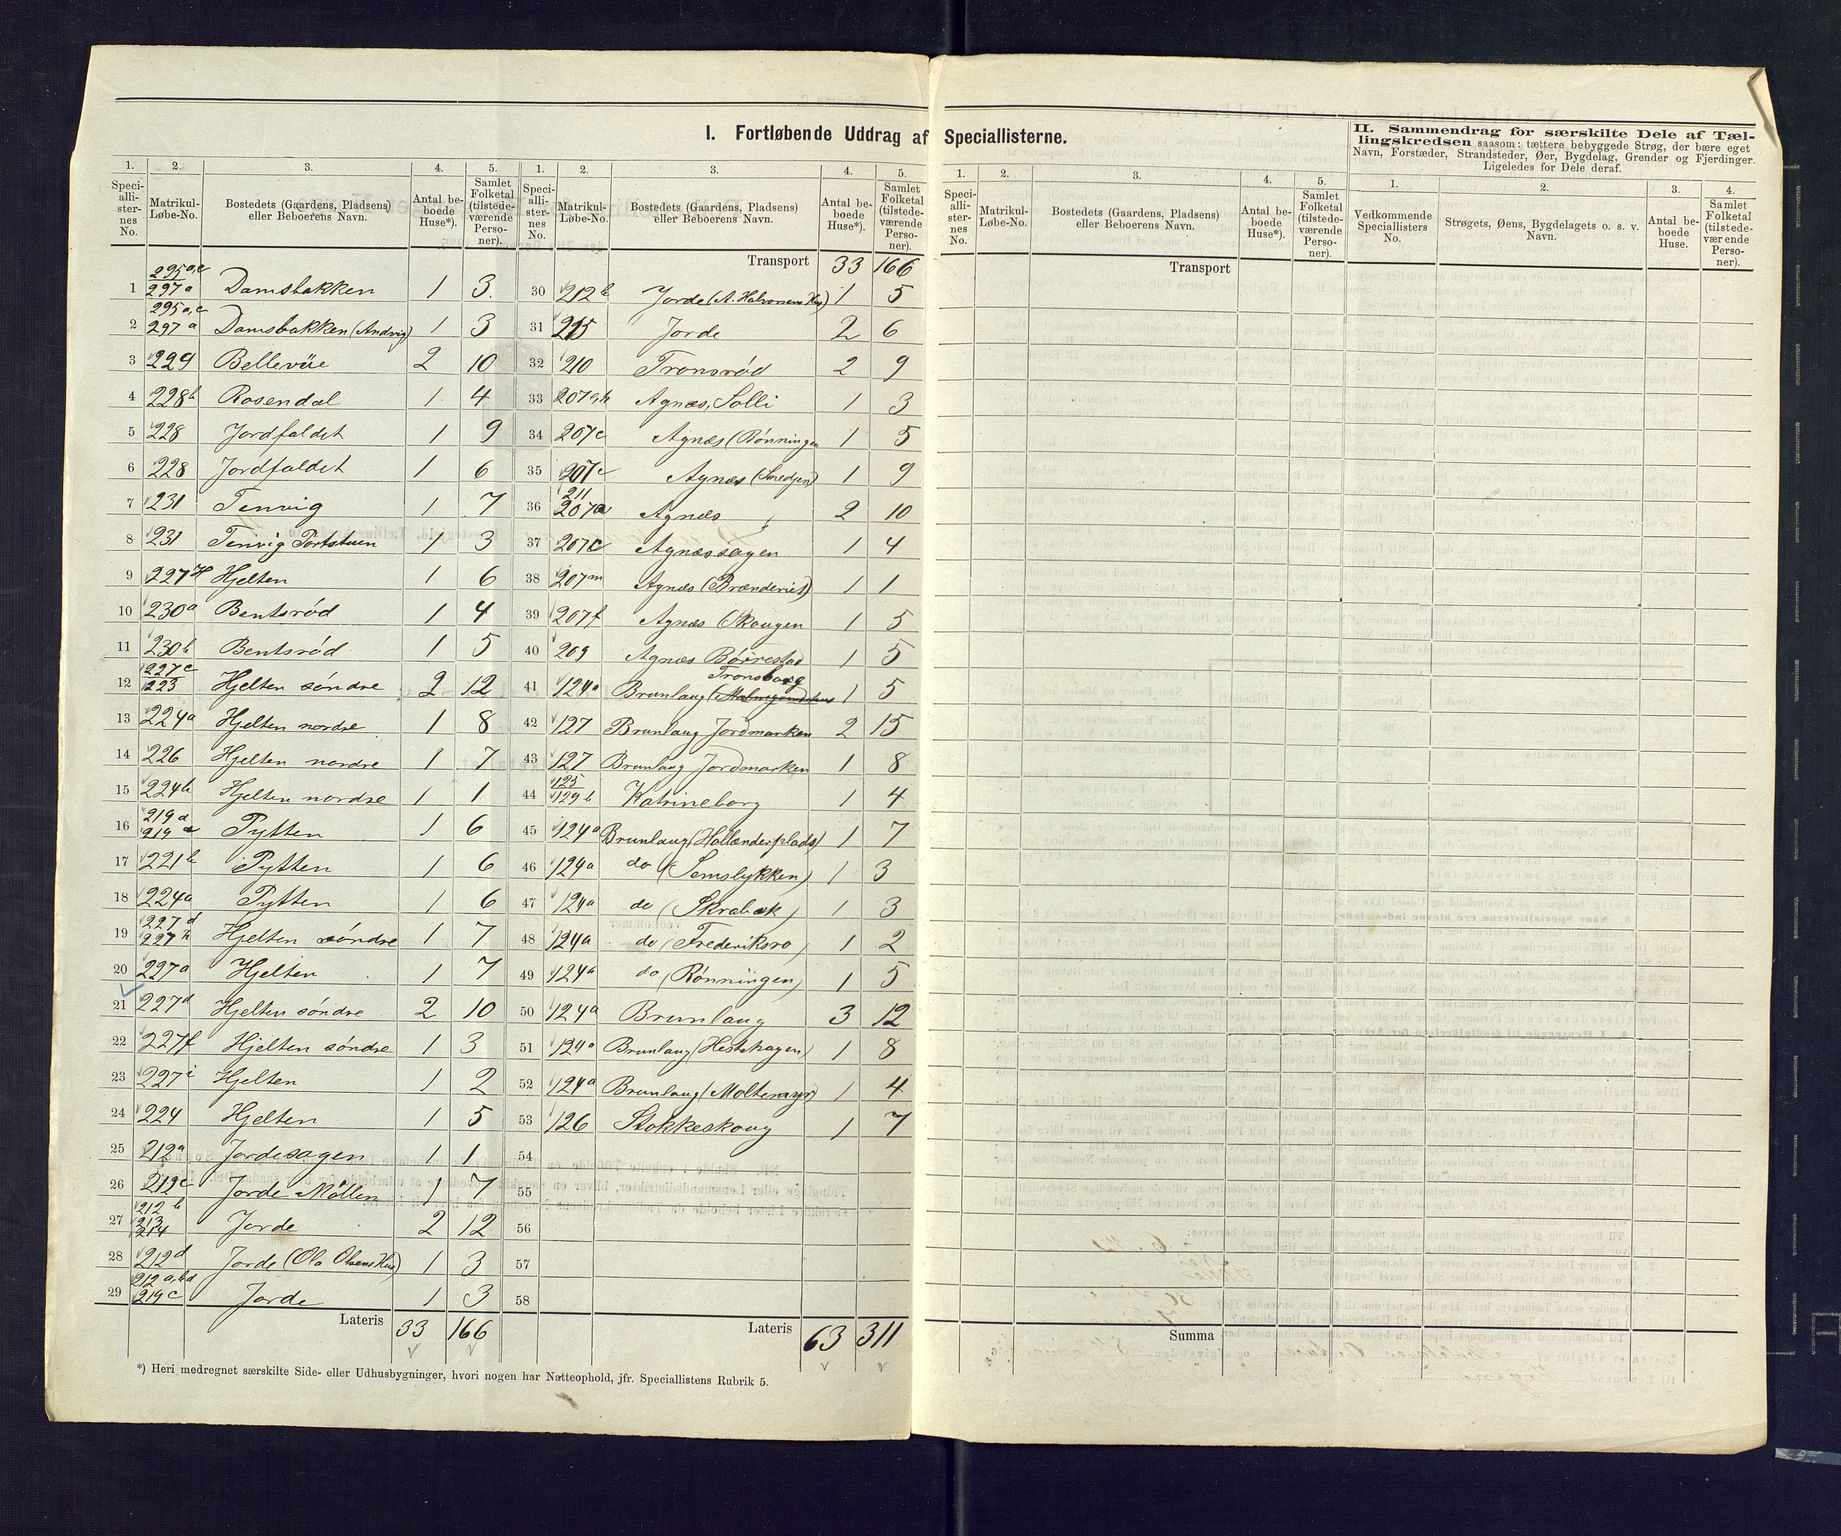 I. Fortløbende Uddrag af Speciallisterne.
II. Sammendrag for særskilte Dele af Tællingskredsen saasom: tættere bebyggede Strøg, der bære eget Navn, Forstæder, Strandsteder, Øer, Bygdelag, Grender og Fjerdinger. Ligeledes for Dele deraf.
1. 2. 3. 4. 5.
Speciallisternes No. Matrikul-Løbe-No. Bostedets (Gaardens, Pladsens) eller Beboerens Navn. Antal beboede Huse*). Samlet Folketal (tilstedeværende Personer).
1 295a,c 297a Damsbakken 1 3.
2 295a,c 297a Damsbakken (Andvig) 1 3
3 229 Bellevüe 2 10
4 228b Rosendal 1 4
5 228 Jordfaldet 1 9
6 228 Jordfaldet 1 6
7 231 Tenvig 1 7
8 231 Tenvig Portstuen 1 3
9 227H Hjelten 1 6
10 230a Bentsrød 1 4
11 230b Bentsrød 1 5
12 227c 223 Hjelten søndre 2 12
13 224a Hjelten nordre 1 8
14 226 Hjelten nordre 1 7
15 224b Hjelten nordre 1 1
16 219d 219e Pytten 1 6
17 221b Pytten 1 6
18 224a Pytten 1 6
19 227d 227h Hjelten søndre 1 7
20 227a Hjelten 1 7
21 227d Hjelten søndre 2 10
22 227f Hjelten søndre 1 3
23 227i Hjelten 1 2
24 224 Hjelten 1 5
25 212a Jordesagen 1 1
26 212c Jorde Møllen 1 7
27 212b 213 214 Jorde 2 12
28 212d Jorde (Ola Olsens Hus) 1 3
29 212a,bd 219c Jorde 1 3
Lateris 33 166
1. 2. 3. 4. 5.
Speciallisternes No. Matrikul-Løbe-No. Bostedets (Gaardens, Pladsens) eller Beboerens Navn. Antal beboede Huse*). Samlet Folketal (tilstedeværende Personer).
Transport 33 166
30 212b Jorde (A. Halvorsens Hus) 1 5
31 215 Jorde 2 6
32 210 Tronsrød 2 9
33 207g,h Agnæs, Solli 1 3
34 207c Agnæs (Rønningen 1 5
35 207c Agnæs (Smedjen) 1 9
36 211 207a Agnæs 2 10
37 207c Agnæssagen 1 4
38 207m Agnæs (Brænderiet) 1 1
39 207f Agnæs (Skougen 1 5
40 209 Agnæs Børrestad 1 5
41 124a Brunlaug (Tronsborg 1 5
42 127 Brunlaug Jordmarken 2 15
43 127 Brunlaug Jordmarken 1 8
44 125 129b Katrineborg 1 4
45 124a Brunlaug (Hollænderplads) 1 7
46 124a do (Semslykken) 1 3
47 124a do (Skrabæk) 1 3
48 124a do (Frederiksro) 1 2
49 124a do (Rønningen) 1 5
50 124a Brunlaug 3 12
51 124a Brunlaug (Hestehagen) 1 8
52 124a Brunlaug (Moltemyr) 1 4
53 126 Stokkeskoug 1 7
54
55
56
57
58
Lateris 63 311
*) Heri medregnet særskilte Side- eller Udhusbygninger, hvori nogen har Natteophold, jfr. Speciallistens Rubrik 5.
1. 2. 3. 4. 5.
Speciallisternes No. Matrikul-Løbe-No. Bostedets (Gaardens, Pladsens) eller Beboerens Navn. Antal beboede Huse*). Samlet Folketal (tilstedeværende Personer).
Transport
Summa
1. 2. 3. 4.
Vedkommende Speciallisters No. Strøgets, Øens, Bygdelagets o. s. v. Navn. Antal beboede Huse. Samlet Folketal (tilstedeværende Personer).